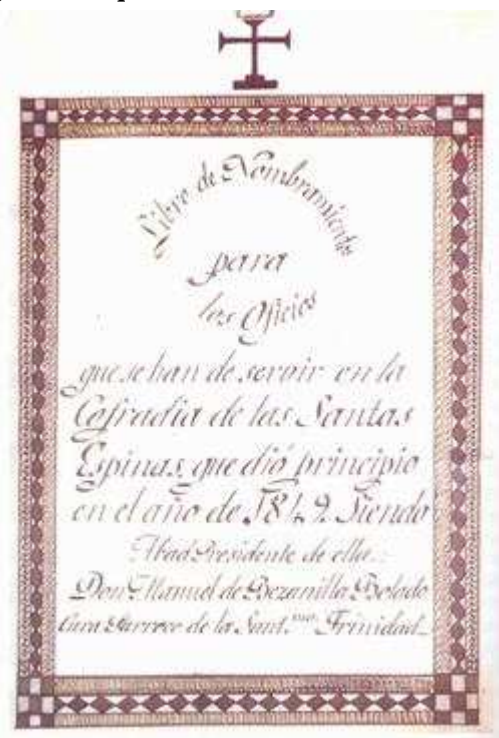 Libro de Nombramientos
para
los Oficios
que se han de servir en la
Cofradia de las Santas
Espinas, que dió principio
en el año de 1849. Siendo
Abad Presidente de ella.
Don Manuel de Bezanilla Bolado
Cura Parroco de la Sant.ma Trinidad